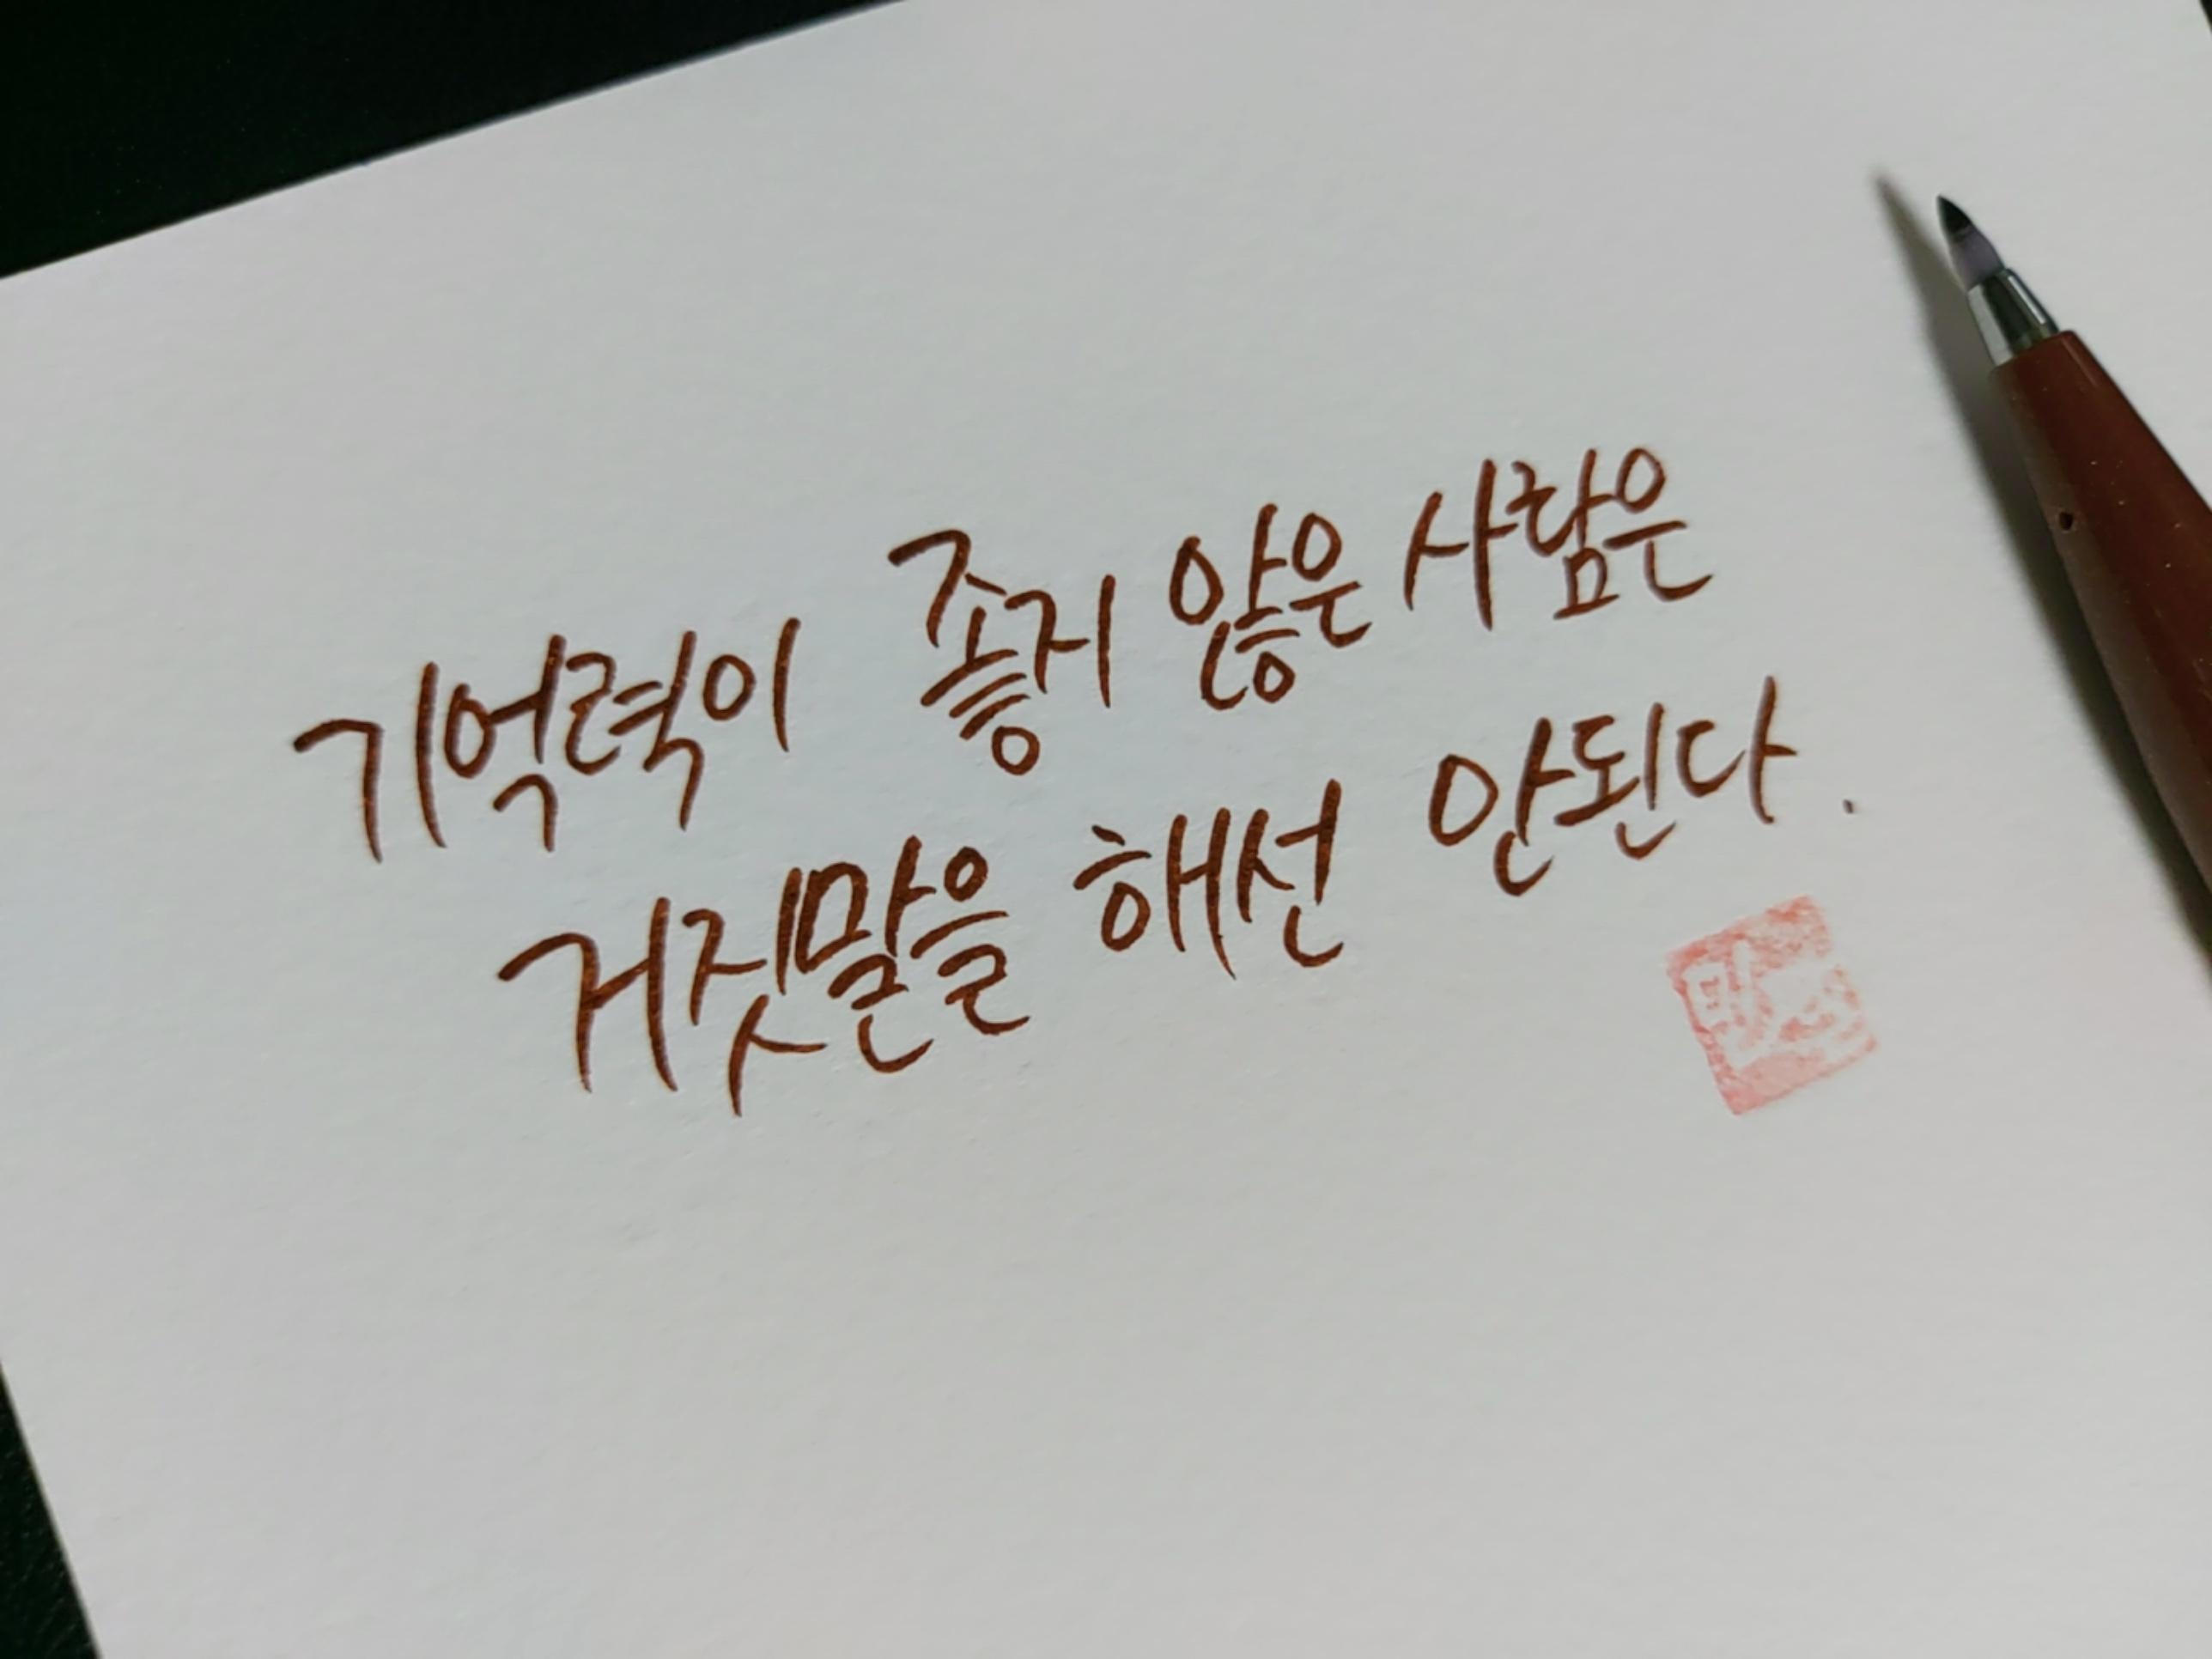 기억력이 좋지 않은 사람은
거짓말을 해선 안된다.